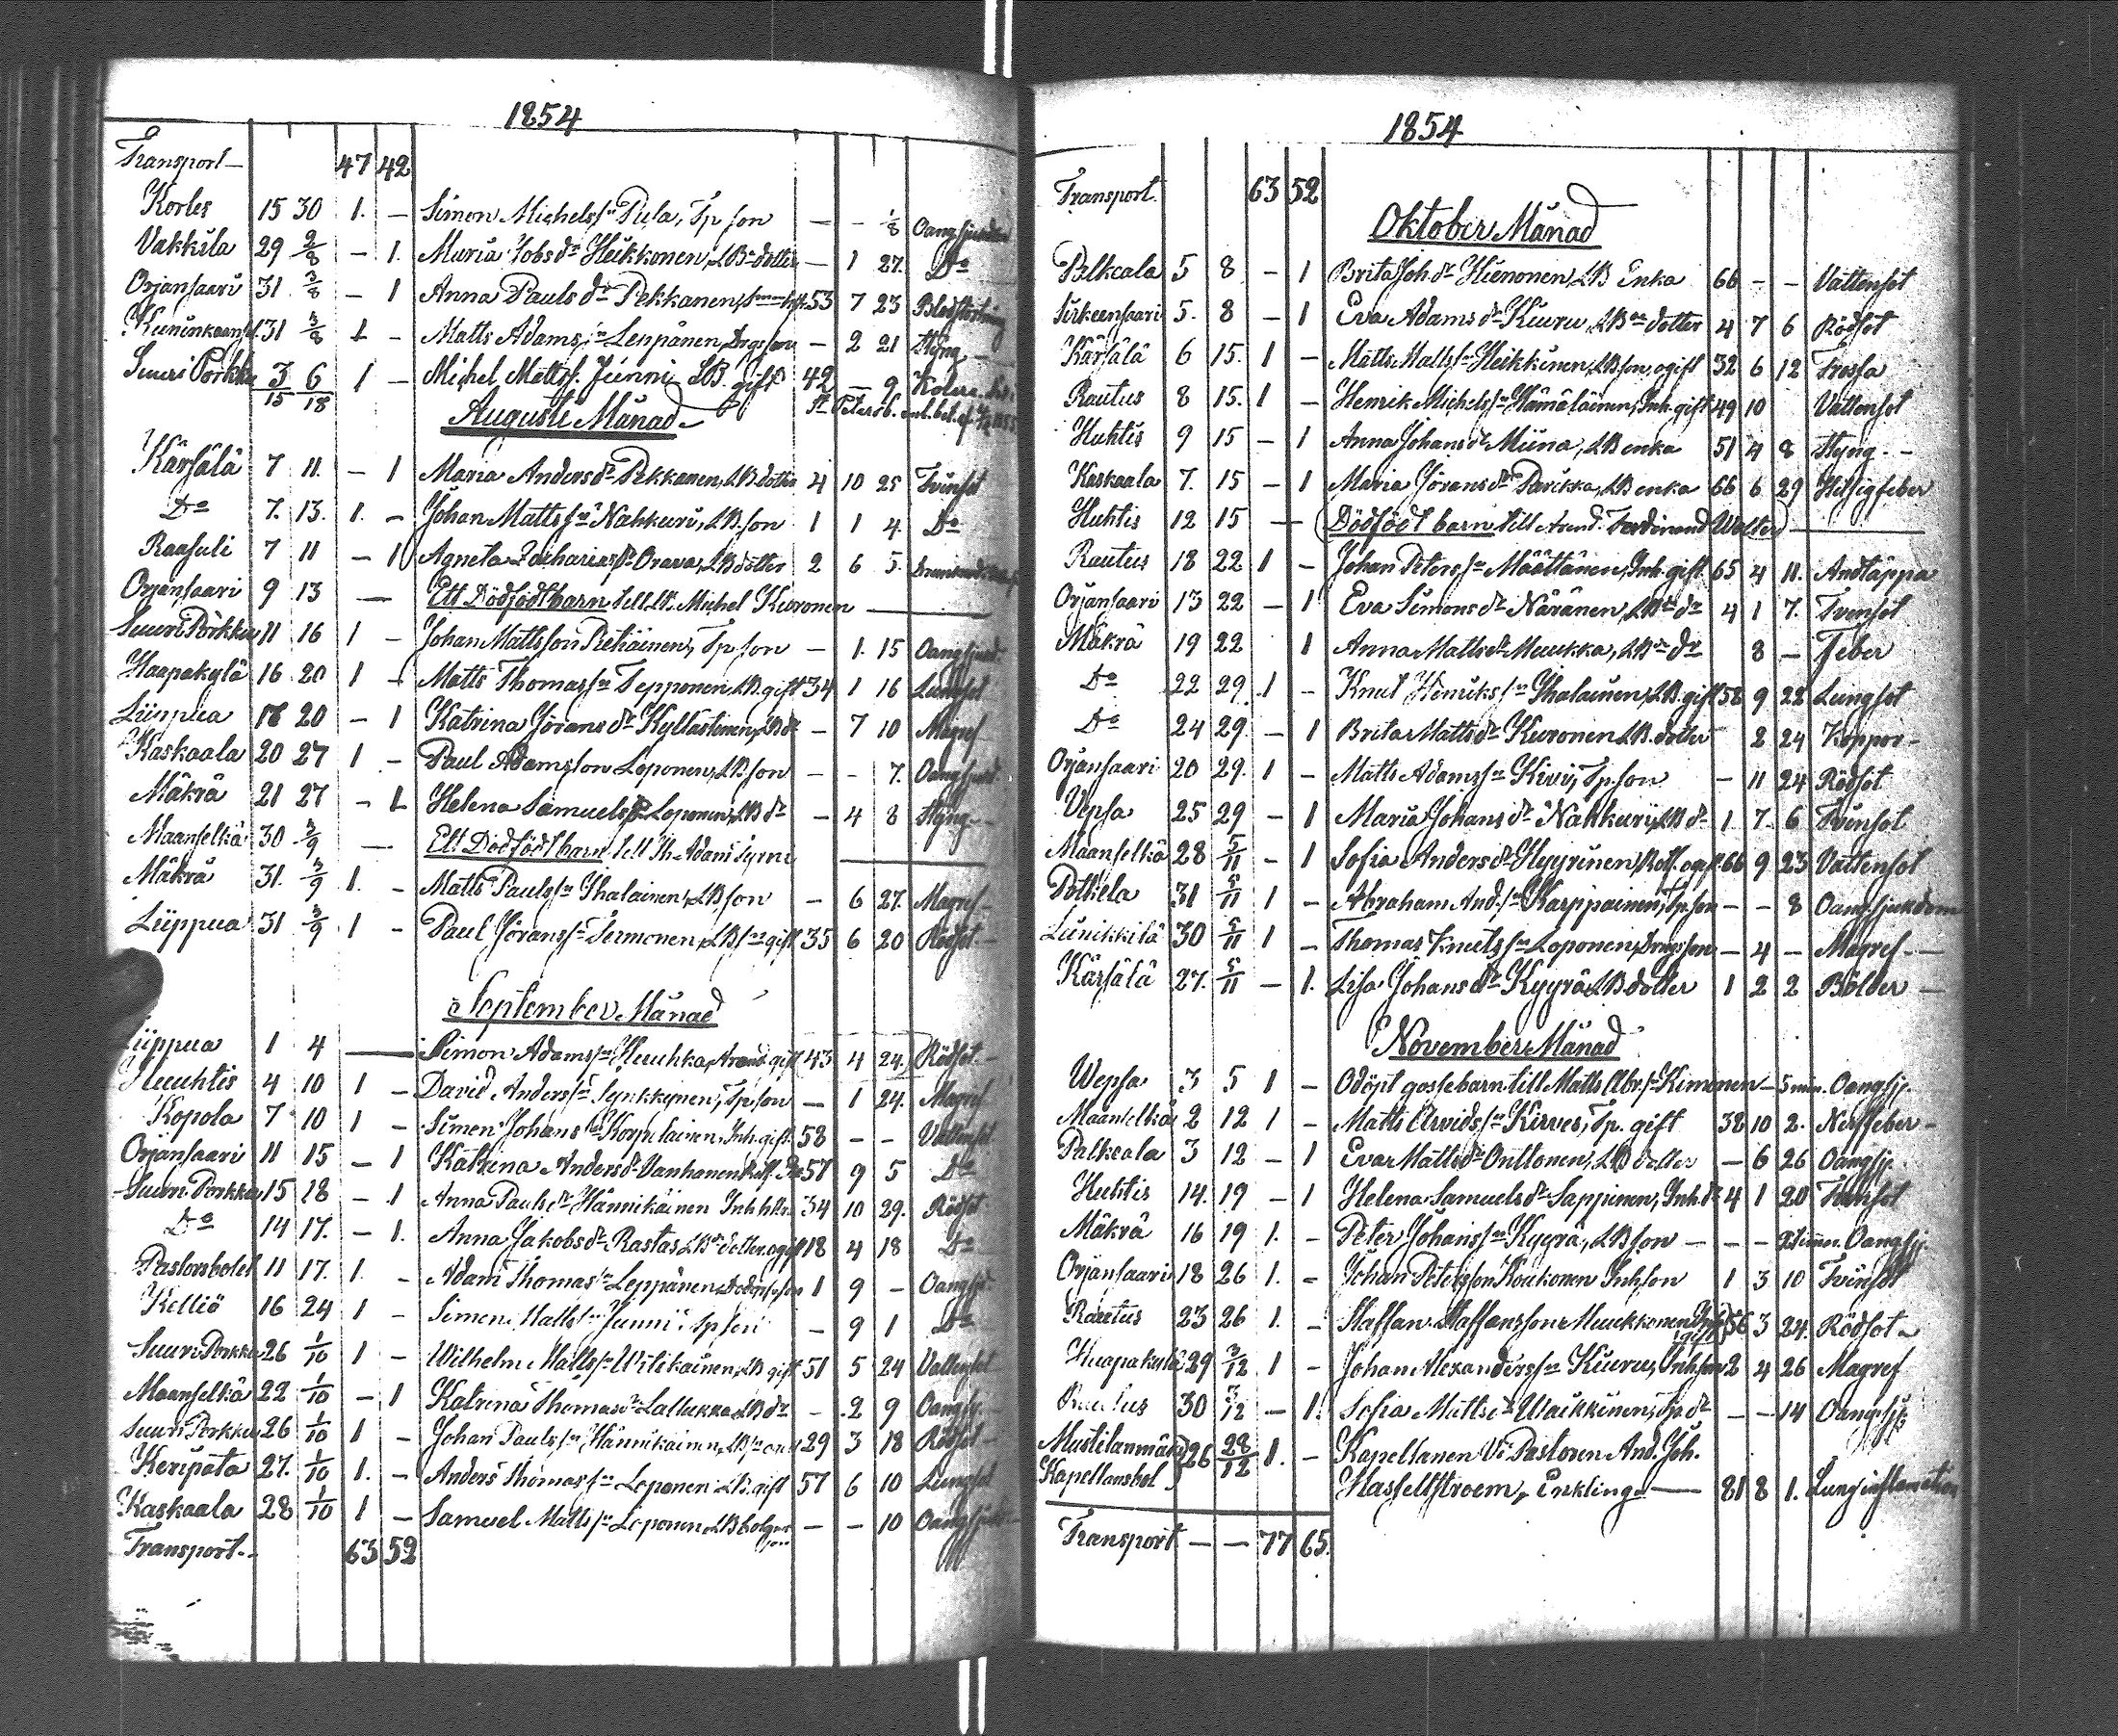 1854
Transport — 47 42
Korles 15 30 1. — Simon Michelss:n Pula, Tp son — — 1/8 Oang. sjukdom
Vakkila 29 2/8 — 1. Maria Jobsd:r Heikkonen, LB:s dotter — 1 27. D:o
Orjansaari 31 3/8 — 1 Anna Paulsd:r Pekkanen, 53 7 23 Blodstörtning
31 3/8 1 — Matts Adamss:n Leppänen, Drgs son — 2 21 Styng —
Suuri Porkku 3/15 6/18 1 — Michel Mattss. Junni LB. gift 42 — 9 Kolera
Augusti Månad St Petersb. enl. bet. af
Kärsälä 7 11. — 1 Maria Andersd:r Pekkanen, LB dotter 4 10 25 Tvinsot
D:o 7. 13. 1. — Johan Mattss:n Nahkuri, LB. son 1 1 4. D:o
Raasuli 7 11 — 1 Agneta Zachariasd:r Orava, LB dotter 2 6 5.
Orjansaari 9 13 — Ett Dödfödt barn till LB. Michel Kuronen —
Suuri Porkku 11 16 1 — Johan Mattsson Pietiäinen, Tp son — 1. 15 Oang sjukd.
Haapakylä 16 20 1 — Matts Thomass:n Tepponen, LB. gift 34 1 16 Lungsot
Liippua 18 20 — 1 Katrina Jöransd:r Kyllästinen, LB d:r — 7 10 Magref
Kaskaala 20 27 1 — Paul Adamsson Loponen, LB son — — 7. Oang sjukd.
Mäkrä 21 27 — 1 Helena Samuelsd:r Loponen, LB d:r — 4 8 Styng —
Maanselkä 30 3/9 — Ett Dödfödt barn till Ih. Adam Syrni —
Mäkrä 31. 3/9 1. — Matts Paulss:n Ihalainen, LB, son — 6 27. Magref —
Liippua 31 3/9 1 — Paul Jöranss:n Termonen, LB s:n gift 35 6 20 Rödsot —
September Månad
Liippua 1 4 — Simon Adamss:n Huuhka, Arend. gift 43 4 24. Rödsot —
Huuhtis 4 10 1 — David Anderss:n Synkkynen, Tp son — 1 24. Magref
Kopola 7 10 1 — Simon Johanss:n Korpelainen, Inh. gift. 58 — — Vattensot
Orjansaari 11 15 — 1 Katrina Andersd:r Vanhanen, 57 9 5 D:o
Suuri Porkku 15 18 — 1 Anna Paulsd:r Hännikäinen Inh. hstr. 34 10 29. Rödsot
D:o 14 17. — 1. Anna Jakobsd:r Rastas, LB:s dotter, ogift 18 4 18 D:o
Pastorsbolet 11 17. 1. — Adam Thomass:n Leppänen, 1 9 — Oang sjd.
Kelliö 16 24 1 — Simon Mattss:n Junni, Tp son — 9 1 D:o
Suuri Porkku 26 1/10 1 — Wilhelm Mattss:n Witikainen, LB gift 51 5 24 Vattensot
Maanselkä 22 1/10 — 1 Katrina Thomasd:r Lallukka, LB d:r — 2 9 Oang sj.
Suuri Porkku 26 1/10 1 — Johan Paulss:n Hännikäinen, LB s:n 29 3 18 Rödsot —
Keripata 27. 1/10 1. — Anders Thomass:n Loponen, LB. gift 57 6 10 Lungsot
Kaskaala 28 1/10 1 — Samuel Mattss:n Loponen, LB bolgas son — — 10 Oang sjukd.
Transport — 63 52
1854
Transport. 63 52
Oktober Månad
Palkeala 5 8 — 1 Brita Joh. d:r Hienonen, LB Enka 66 — — Vattensot
Sirkeensaari 5. 8 — 1 Eva Adamsd:r Kiuru, LB:es dotter 4 7 6 Rödsot
Kärsälä 6 15. 1 — Matts Mattss:n Heikkinen, LB son, ogift 32 6 12 Frossa
Rautus 8 15. 1 — Henrik Michelss:n Hämäläinen, Inh. gift 49 10 Vattensot
Huhtis 9 15 — 1 Anna Johansd:r Miina, LB enka 51 4 8 Styng — —
Kaskaala 7. 15 — 1 Maria Jöransd:r Parikka, LB enka 66 6 29 Hetsigfeber
Huhtis 12 15 — Dödfödt barn till Arend. Ferdinand Walter —
Rautus 18 22 1 — Johan Peterss:n Määttänen, Inh. gift 65 4 11. Andtäppa
Orjansaari 13 22 — 1 Eva Simonsd:r Näränen, LB:s d:r 4 1 7. Tvinsot
Mäkrä 19 22 1 Anna Mattsd:r Muukka, LB:s d:r 8 — Feber
D:o 22 29 1 — Knut Henrikss:n Ihalainen, LB. gift 58 9 22 Lungsot
D:o 24 29. — 1 Brita Mattsd:r Kuronen, LB. dotter 2 24 Koppor —
Orjansaari 20 29. 1 — Matts Adamss:n Kivi, Tp. son — 11 24 Rödsot
Vepsa 25 29 — 1 Maria Johansd:r Nahkuri, LB d:r 1 7. 6 Tvinsot
Maanselkä 28 5/11 — 1 Sofia Andersd:r Hyyrynen, Rotf. ogift 66 9 23 Vattensot
Potkela 31 5/11 1 — Abraham And. s:n Karppainen, Tp. son — — 8 Oang. sjukdom
Liinikkilä 30 5/11 1 — Thomas Knutss:n Loponen, Drngs son — 4 — Magref —
Kärsälä 27. 5/11 — 1. Lisa Johansd:r Kyyrä, LB dotter 1 2 2 Bölder —
November Månad
Wepsa 3 5 1 — Odöpt gossebarn till Matts Abr. s:n Kimonen — 5 min. Oang sj.
Maanselkä 2 12 1 — Matts Arvidss:n Kirves, Tp. gift 32 10 2. Nerffeber —
Palkeala 3 12 — 1 Eva Mattsd:r Onttonen, LB dotter — 6 26 Oang sj.
Huhtis 14. 19 — 1 Helena Samuelsd:r Sappinen, Inh. d:r 4 1 20 Tvinsot
Mäkrä 16 19 1. — Peter Johanss:n Kyyrä, LB son — — — timm. Oang sj.
Orjansaari 18 26 1. — Johan Petersson Koukonen Inh son 1 3 10 Tvinsot
Rautus 23 26 1. — Staffan Staffansson Muukkonen, gift 56 3 24. Rödsot —
Haapakylä 29 3/12 1 — Johan Alexanderss:n Kiuru, Inh son 2 4 26 Magref
Rautus 30 3/12 — 1. Sofia Mattsd:r Waikkinen, Tp. d:r — — 14 Oang. sj.
Mustilanmäki 26 28/12 1. — Kapellanen V. Pastoren And. Joh.
Kapellansbol Hasselstroem, Enkling — 81 8 1. Lunginflamation
Transport — — 77 65.